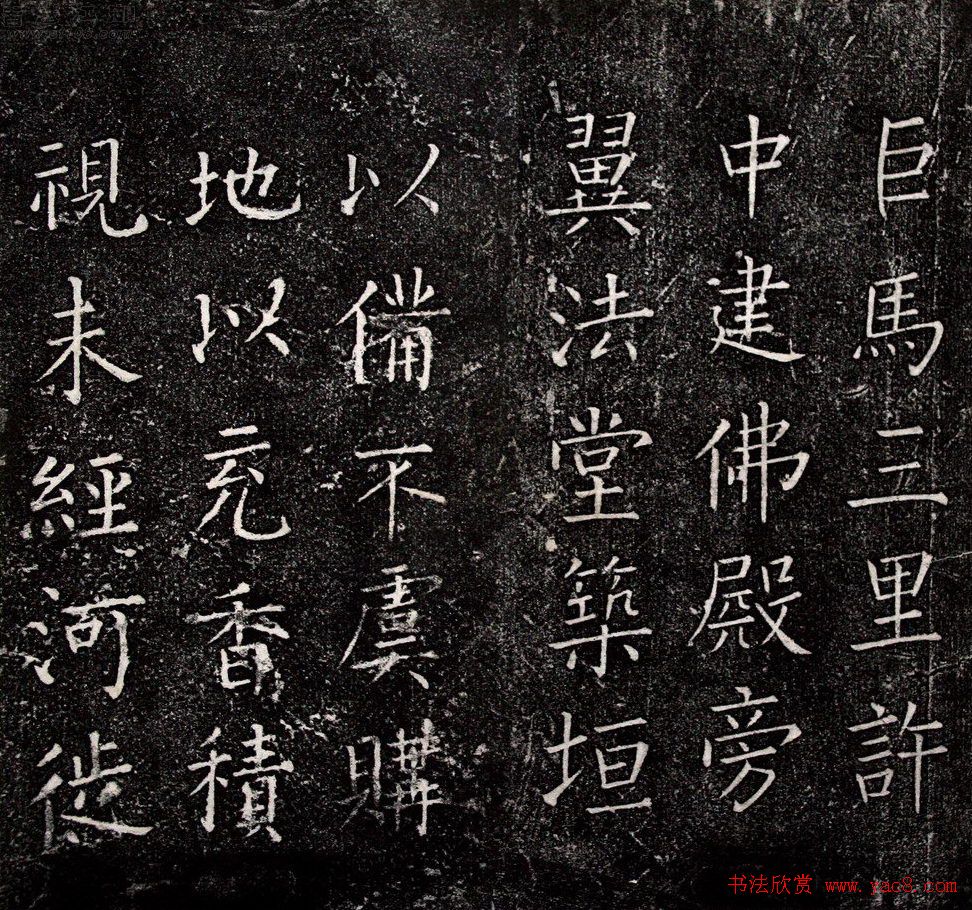 巨馬三里許
中建佛殿旁
翼法堂築垣
以備不虞購
地以充香積
視未經河徙
书法欣赏 www.yac8.com